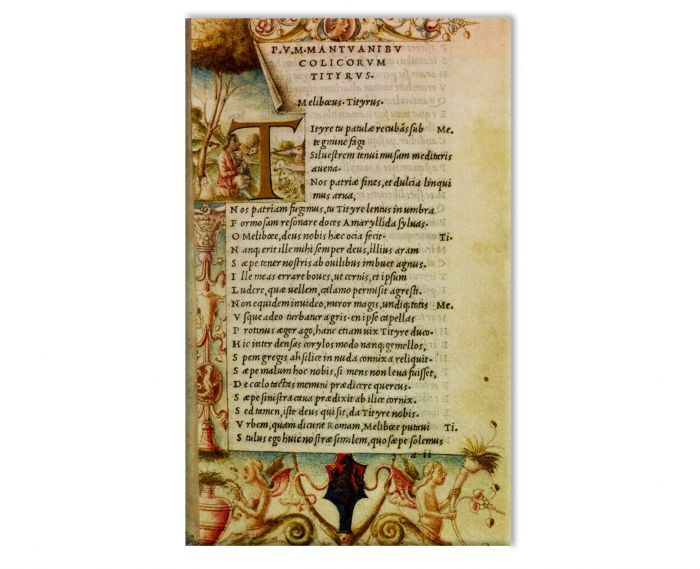 P. V. M. MANTVANI BV
COLICORVM
TITYRVS.
Melibœus. Tityrus.
Tityre tu patulæ recubãs sub Me.
tegmine fagi
Siluestrem tenui musam meditaris
auena.
Nos patriæ fines, et dulcia linqui
mus arua,
Nos patriam fugimus, tu Tityre lentus in umbra
Formosam resonare doces Amaryllida syluas.
O Melibœe, deus nobis hæc ocia fecit. Ti.
Nanq; erit ille mihi semper deus, illius aram
Sæpe tener nostris ab ouilibus imbuet agnus.
Ille meas errare boues, ut cernis, et ipsum
Ludere, quæ uellem, calamo permisit agresti.
Non equidem inuideo, miror magis, undiq; totis Me.
Vsque adeo turbatur agris. en ipse capellas
Protinus æger ago, hanc etiam uix Tityre duco.
Hic inter densas corylos modo nanq; gemellos,
Spem gregis ah silice in nuda connixa reliquit.
Sæpe malum hoc nobis, si mens non leua fuisset,
De cœlo tactas memini prædicere quercus.
Sæpe sinistra caua prædixit ab ilice cornix.
Sed tamen, iste deus qui sit, da Tityre nobis.
Vrbem, quam dicunt Romam, Melibœe putaui Ti.
Stultus ego huic nostræ similem, quo sæpe solemus
a ii